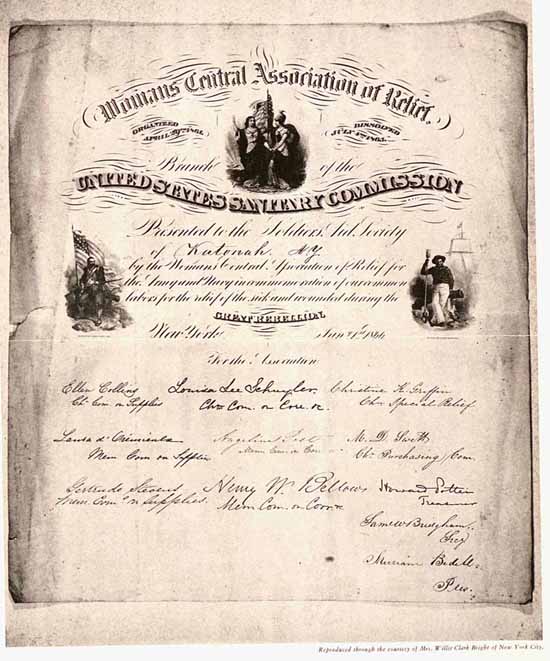 Womans Central Association of Relief.
ORGANIZED
APRIL 29TH 1861.
DISSOLVED
JULY 4TH 1865.
Branch of the
UNITED STATES SANITARY COMMISSION
Presented to the Soldiers Aid Society
of Katonah. NY
by the Womans Central Association of Relief for
the Army and Navy in commemoration of our common
labors for the relief of the sick and wounded during the
GREAT REBELLION.
New York Jan 1866
For the Association
Ellen Collins Louisa Lee Schuyler. Christine K. Griffin
Ch. Com. on Supplies Chn. Com. on Corr. &c. Chn. Special Relief
M. D. Swett
Mem Com on Supplies Mem Com on Ch. Purchasing Com.
Gertrude Stevens Henry W. Bellows Howard Potter
Mem. Com. on Supplies. Mem Com. on Corr &c Treasurer
Sec'y
Pres.
Reproduced through the courtesy of Mrs. Willis Clark Bright of New York City.